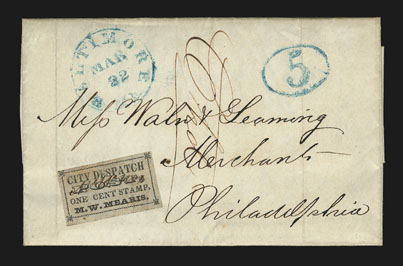 BALTIMORE Md.
MAR
22
5
Messrs Waln & Leaming
Merchants
Philadelphia
CITY DESPATCH
ONE CENT STAMP.
M. W. MEARIS.